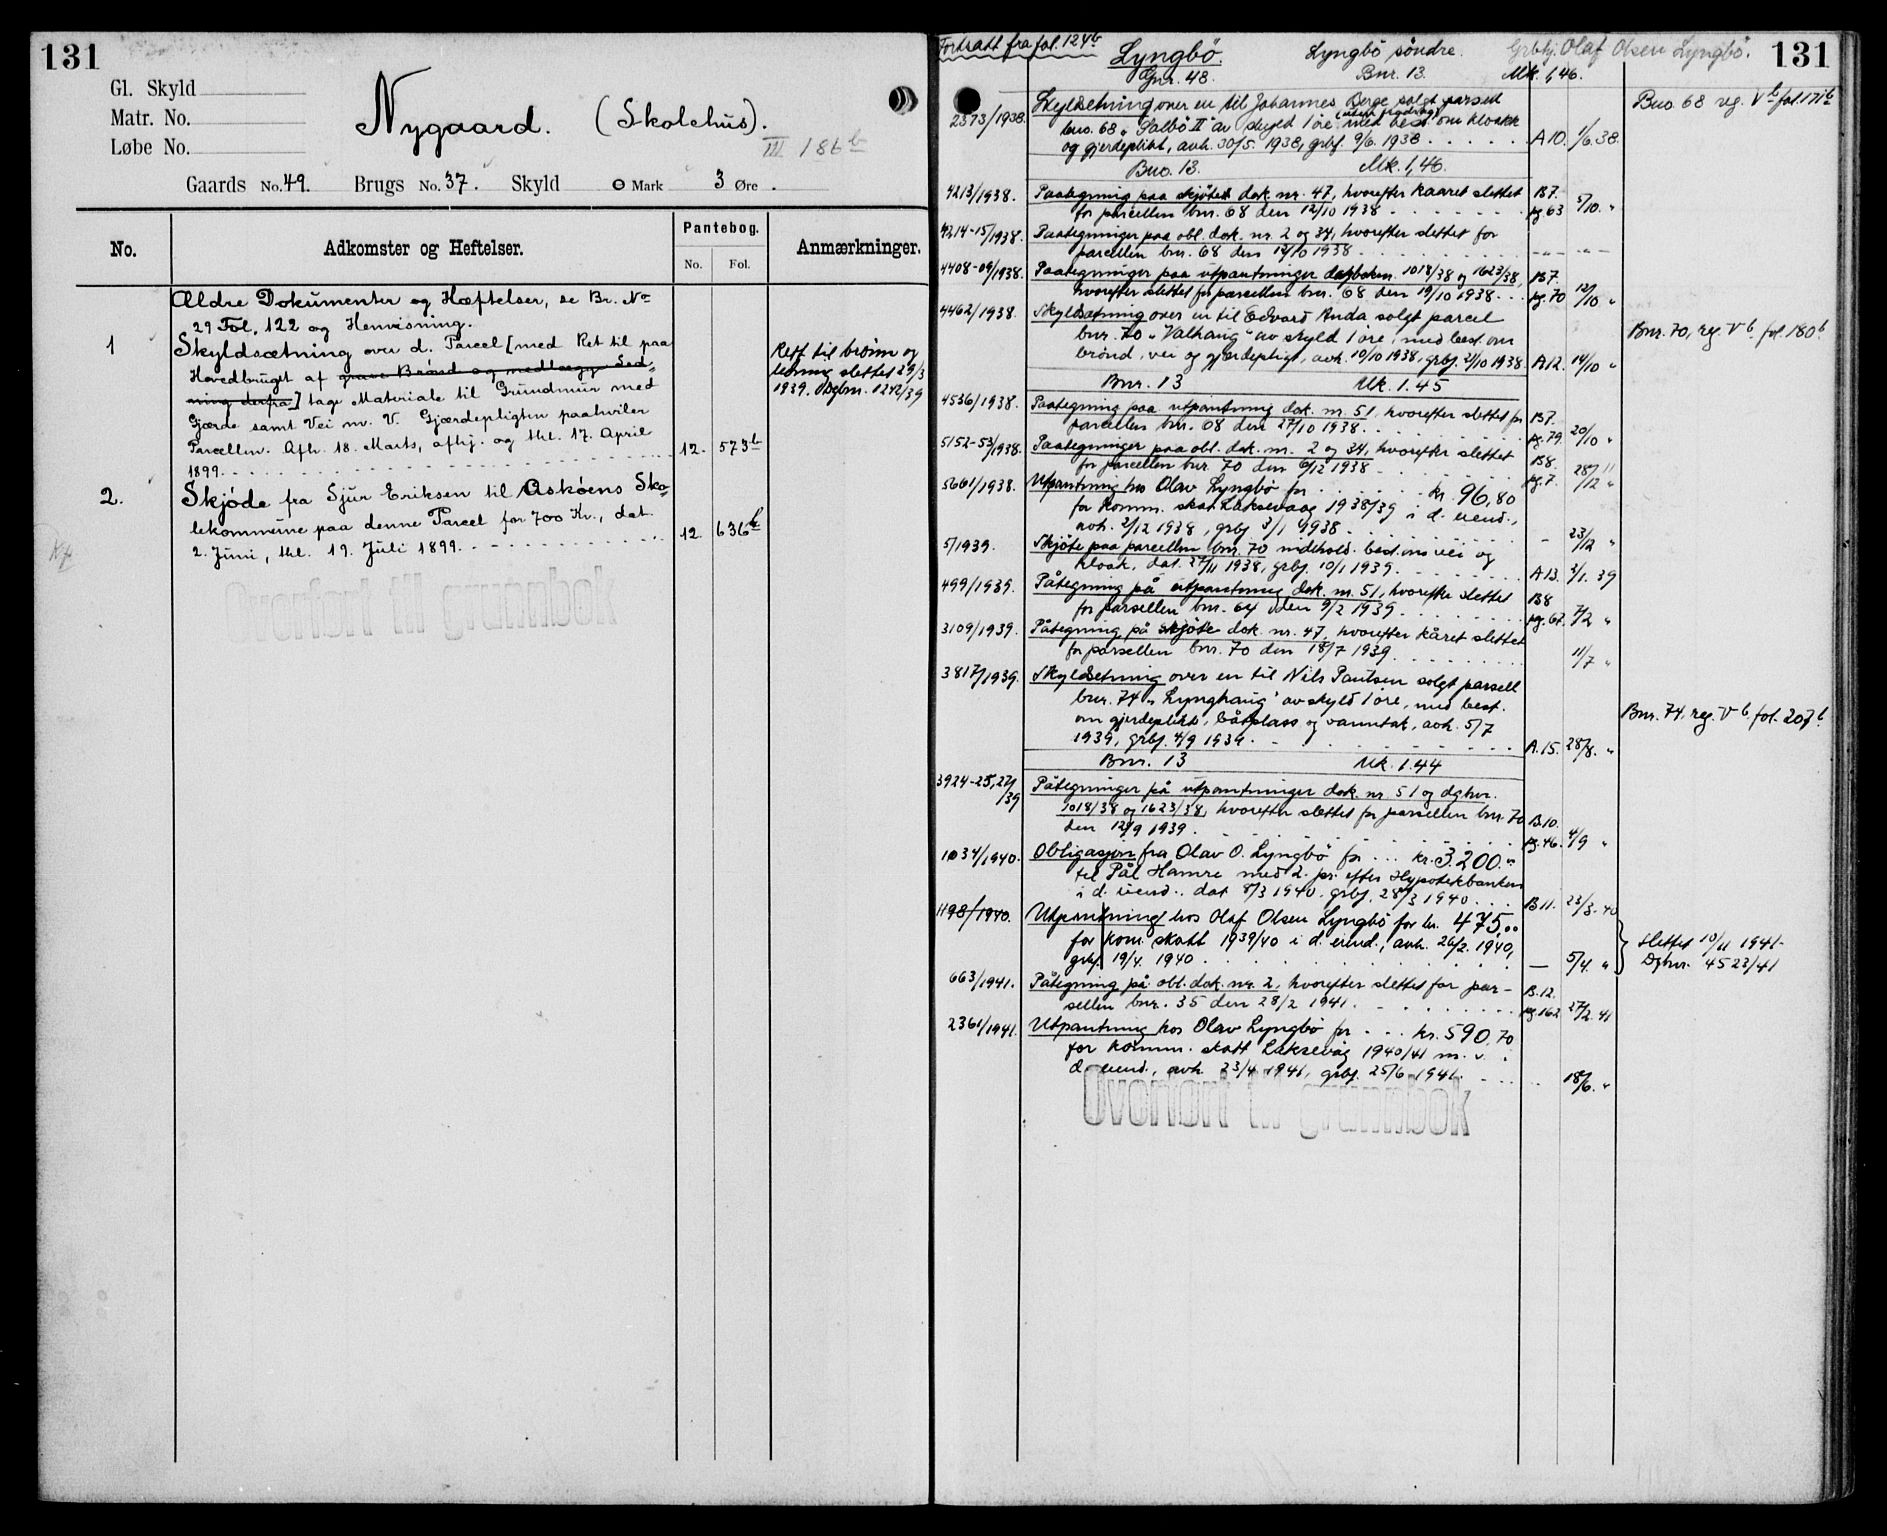 131
Gl. Skyld
Matr. No.
Løbe No.
Nygaard. (Skolehus).
III 186 b
Gaards No. 49. Brugs No. 37. Skyld 0 Mark 3 Øre.
No.
Adkomster og Heftelser.
Pantebog.
No. Fol.
Anmærkninger.
Ældre Dokumenter og Hæftelser, se Br. No
29 Fol. 122 og Henvisning.
1 Skyldsætning over d. Parcel [med Ret til paa
Hovedbruget af grave Brønd og nedlægge Led=
ning derfra] tage Materiale til Grundmur med
Gjærde samt Vei m. V. Gjærdepligten paahviler
Parcellen. Afh. 18. Marts, afhj. og thl. 17. April 12. 573b
1899.
Rett til brönn og
ledning slettet 29/3
1939. Dagbnr. 1242/39
2. Skjøde fra Sjur Eriksen til Askøens Sko=
lekommune paa denne Parcel for 700 Kr., dat. 12. 636b
2. Juni, thl. 19. Juli 1899.
Overført til grunnbok
Fortsatt fra fol. 124b
Lyngbö. Lyngbö söndre. Grbhj. Olaf Olsen Lyngbö. 131
Gnr. 48. Bnr. 13. Mk. 1,46.
2373/1938. Skyldsetning over en til Johannes Berge solgt parsell
bno. 68 "Solbö II" av skyld 1 öre med best. om kloakk
og gjerdeplikt, avh. 30/5 1938, grbf. 9/6 1938 A10. 1/6.38.
Bno. 68 reg. Vb fol 171b
Bno. 13. Mk. 1,46.
4213/1938. Paategning paa skjötet dok. nr. 47, hvorefter kaaret slettet B7.
for parcellen bnr. 68 den 12/10 1938 pg 63 5/10. "
4214-15/1938. Paategninger paa obl. dok. nr. 2 og 34, hvorefter slettet for
parcellen bnr. 68 den 12/10 1938 -"- -"-
4408-09/1938. Paategninger paa utpantninger dagboknr. 1018/38 og 1623/38, B7.
hvorefter slettet for parcellen bnr. 68 den 19/10 1938 pg. 70 12/10 "
4462/1938. Skyldsætning over en til Edvard Anda solgt parcel
bnr. 70 "Valhaug" av skyld 1 öre, med best. om
brönd, vei og gjerdepligt, avh. 10/10 1938, grbf. 21/10 1938 A12. 14/10 "
Bnr. 70, reg. Vb fol. 180b
Bnr. 13 Mk. 1.45
4536/1938. Paategning paa utpantning dok. nr. 51, hvorefter slettet for B7.
parcellen bnr. 68 den 27/10 1938 pg. 79. 20/10 "
5152-53/1938. Paategninger paa obl. dok. nr. 2 og 34, hvorefter slettet B8.
for parcellen bnr. 70 den 6/12 1938 pg. 7. 28/11 "
5661/1938. Utpantning hos Olav Lyngbö for kr. 96,80
for komm. skat Laksevaag 1938/39 i d. eiend.,
avh. 2/12 1938, grbf. 3/1 1938 - 23/12 "
5/1939. Skjöte paa parcellen bnr. 70 indehold. best. om vei og
kloak, dat. 27/11 1938, grbf. 10/1 1939 A13. 3/1. 39
499/1939. Påtegning på utpantning dok. nr. 51, hvorefter slettet B8
for parsellen bnr. 64 den 9/2 1939 pg. 67. 7/2 "
3109/1939. Påtegning på skjöte dok. nr. 47, hvorefter kåret slettet
for parsellen bnr. 70 den 18/7 1939 11/7 "
3817/1939. Skyldsetning over en til Nils Paulsen solgt parsell
bnr. 74 "Lynghaug" av skyld 1 öre, med best.
om gjerdeplikt, båtplass og vanntak, avh. 5/7
1939, grbf. 4/9 1939. A.15. 28/8. "
Bnr. 74, reg. Vb, fol. 207b
Bnr. 13 Mk. 1.44
3924-25,27/39 Påtegninger på utpantninger dok. nr. 51 og dgbnr.
1018/38 og 1623/38, hvorefter slettet for parsellen bnr. 70 B.10.
den 12/9 1939. pg. 46. 4/9 "
1034/1940. Obligasjon fra Olav O. Lyngbö for kr. 3.200."
til Pål Hamre med 2. pr. efter Hypotekbanken
i d. eiend., dat. 8/3 1940. grbf. 28/3 1940 B11. 23/3. 40
1198/1940. Utpantning hos Olaf Olsen Lyngbö for kr. 475,00
for kom. skatt 1939/40 i d. eiend., avh. 26/2. 1940,
grbf. 19/4. 1940 - 5/4. "
Slettet 10/11 1941.
Dgbnr. 4523/41
663/1941. Påtegning på obl. dok. nr. 2, hvorefter slettet for par- B.12.
sellen bnr. 35 den 28/2 1941. pg. 162 27/2. 41
2361/1941. Utpantning hos Olav Lyngbö for kr. 590,70
for komm. skatt Laksevåg 1940/41 m. v. i
d. eiend., avh. 23/4 1941, grbf. 25/6 1941. 18/6. "
Overført til grunnbok